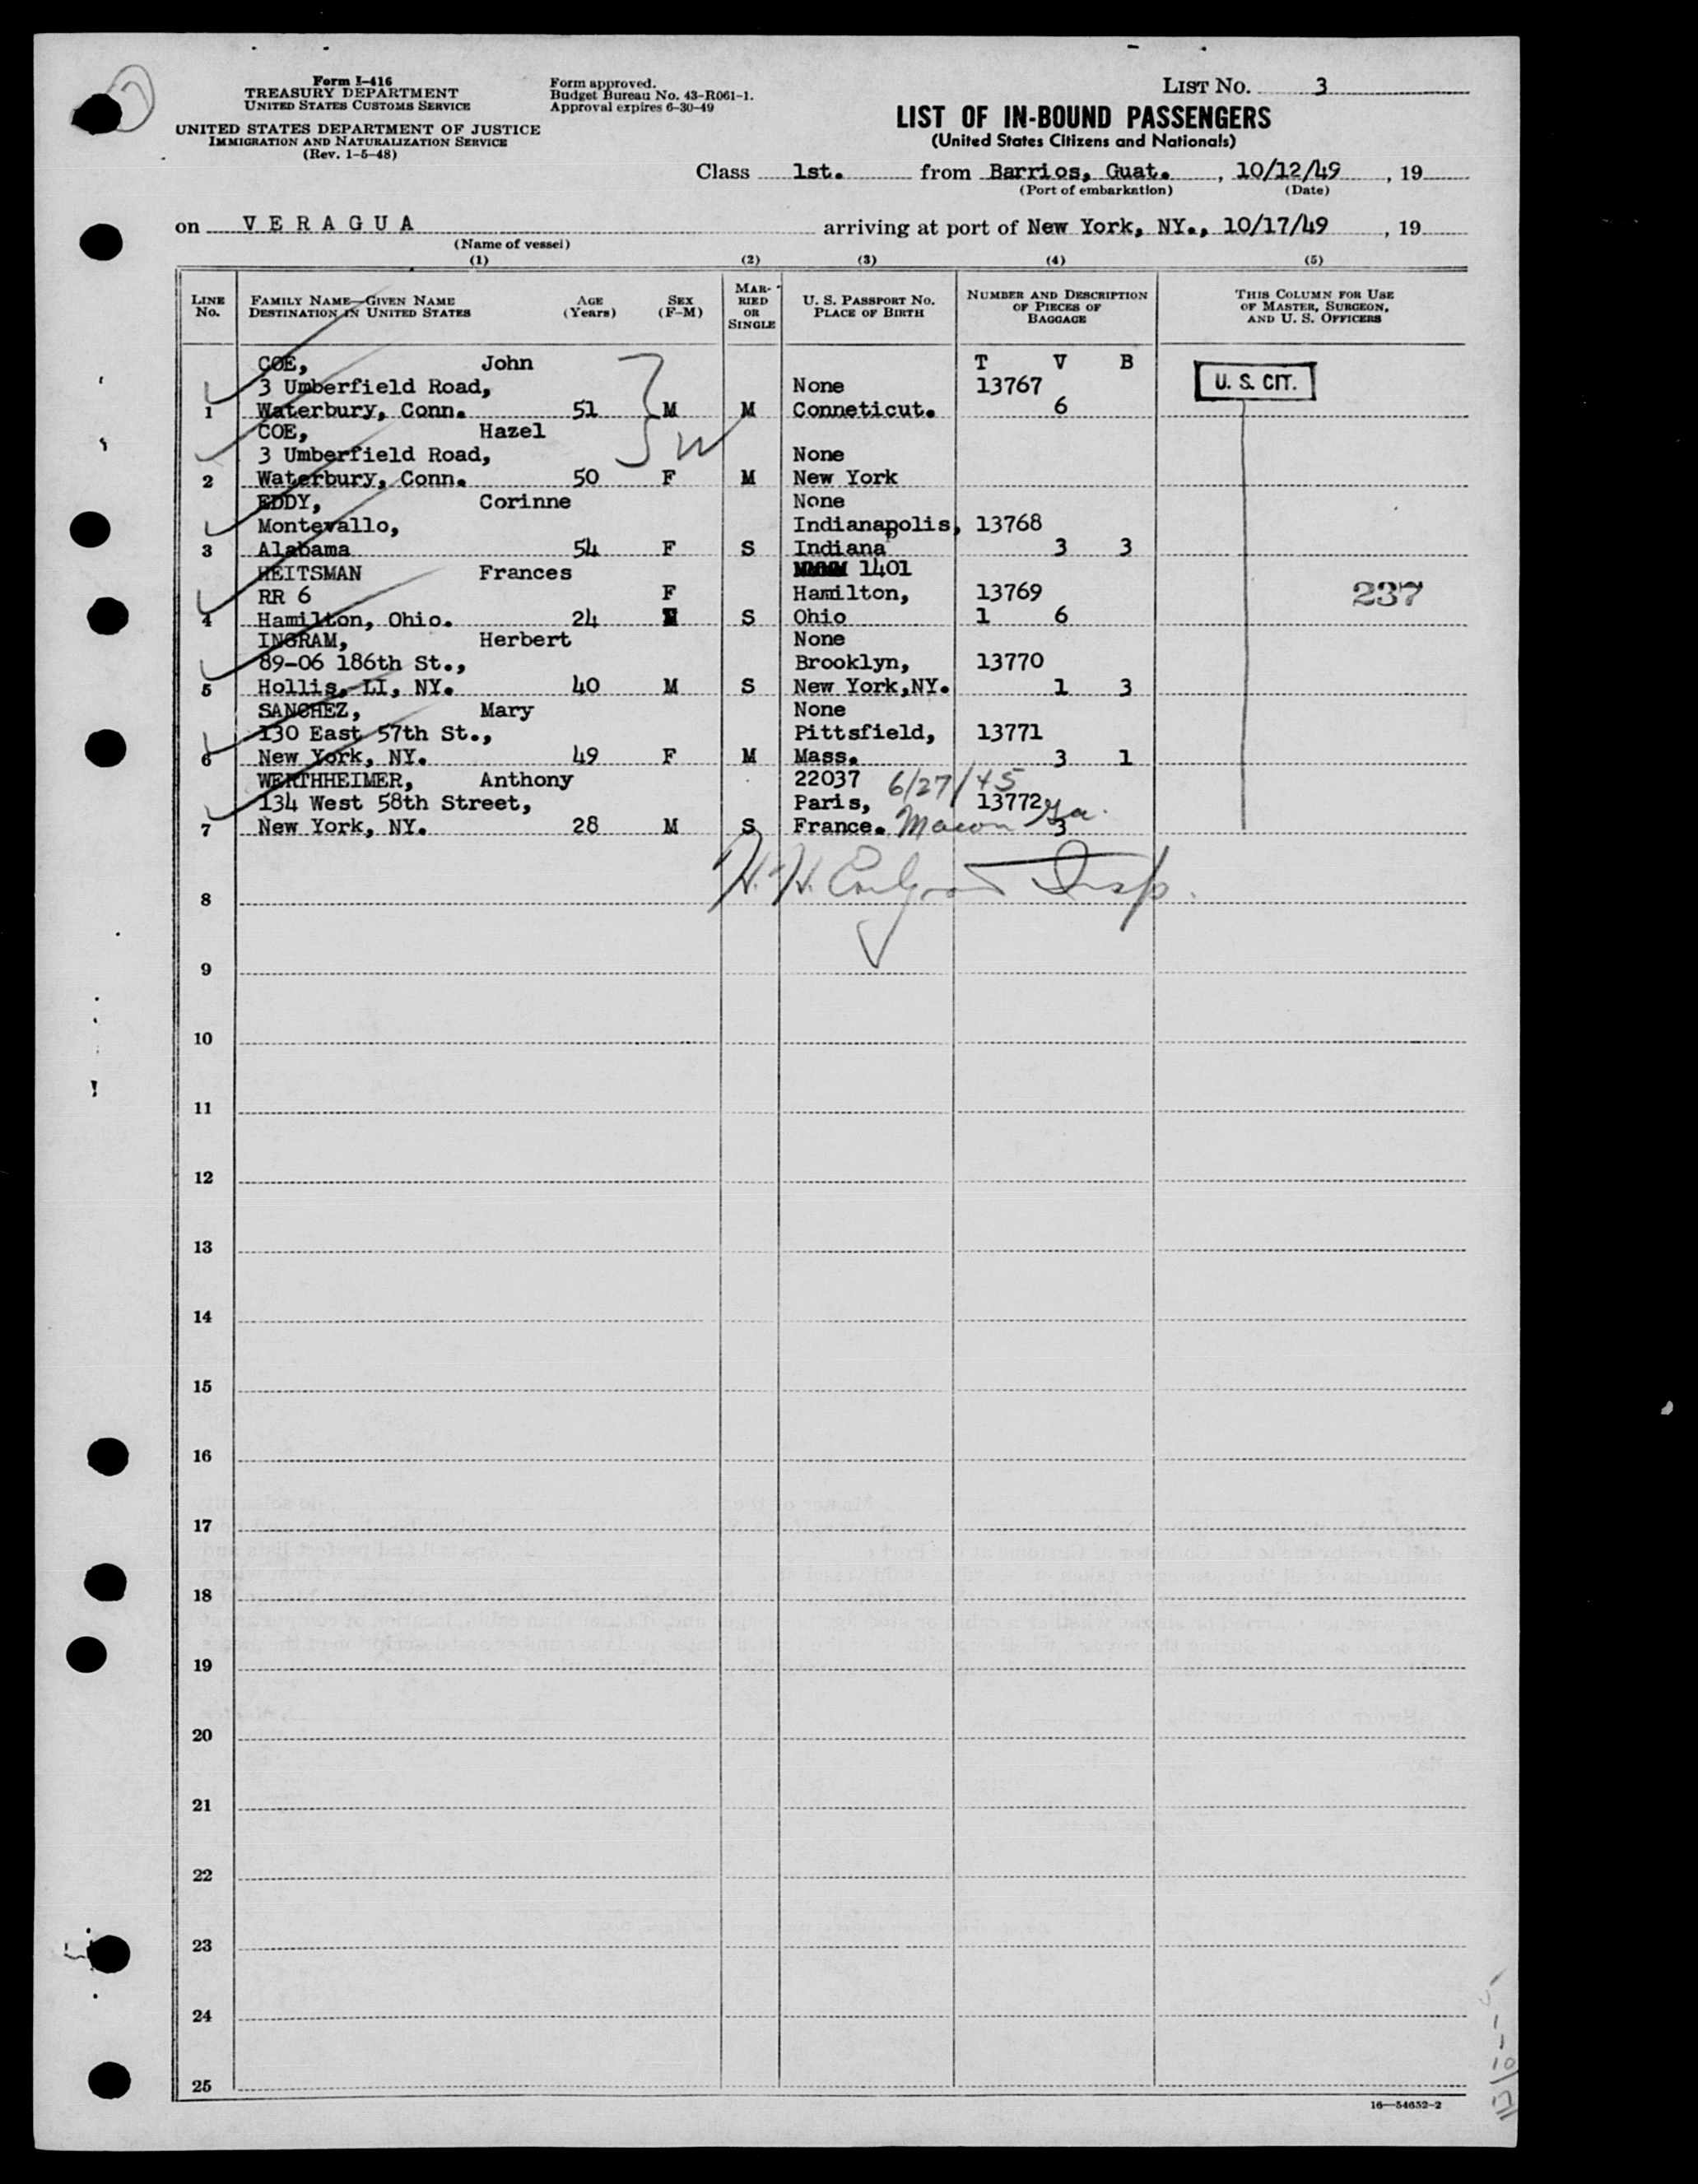 Form I-416
TREASURY DEPARTMENT
UNITED STATES CUSTOMS SERVICE
UNITED STATES DEPARTMENT OF JUSTICE
IMMIGRATION AND NATURALIZATION SERVICE
(Rev. 1-5-48)
Form approved.
Budget Bureau No. 43-R061-1.
Approval expires 6-30-49
LIST NO. 3
LIST OF IN-BOUND PASSENGERS
(United States Citizens and Nationals)
Class 1st. from Barrios, Guat. , 10/12/49 , 19
(Port of embarkation) (Date)
on V E R A G U A arriving at port of New York, NY., 10/17/49 , 19
(Name of vessel)
(1) (2) (3) (4) (5)
LINE NO.
FAMILY NAME—GIVEN NAME
DESTINATION IN UNITED STATES
AGE (Years)
SEX (F-M)
MAR-RIED OR SINGLE
U. S. PASSPORT NO.
PLACE OF BIRTH
NUMBER AND DESCRIPTION OF PIECES OF BAGGAGE
THIS COLUMN FOR USE OF MASTER, SURGEON, AND U. S. OFFICERS
COE, John T V B
3 Umberfield Road, None 13767 U. S. CIT.
1 Waterbury, Conn. 51 M M Conneticut. 6
COE, Hazel
3 Umberfield Road, W None
2 Waterbury, Conn. 50 F M New York
EDDY, Corinne None
Montevallo, Indianapolis, 13768
3 Alabama 54 F S Indiana 3 3
HEITSMAN Frances 1401
RR 6 F Hamilton, 13769 237
4 Hamilton, Ohio. 24 S Ohio 1 6
INGRAM, Herbert None
89-06 186th St., Brooklyn, 13770
5 Hollis, LI, NY. 40 M S New York,NY. 1 3
SANCHEZ, Mary None
130 East 57th St., Pittsfield, 13771
6 New York, NY. 49 F M Mass. 3 1
WERTHHEIMER, Anthony 22037 6/27/45
134 West 58th Street, Paris, 13772
7 New York, NY. 28 M S France. Macon Ga. 3
H. H. Insp.
8
9
10
11
12
13
14
15
16
17
18
19
20
21
22
23
24
25
16—54652-2